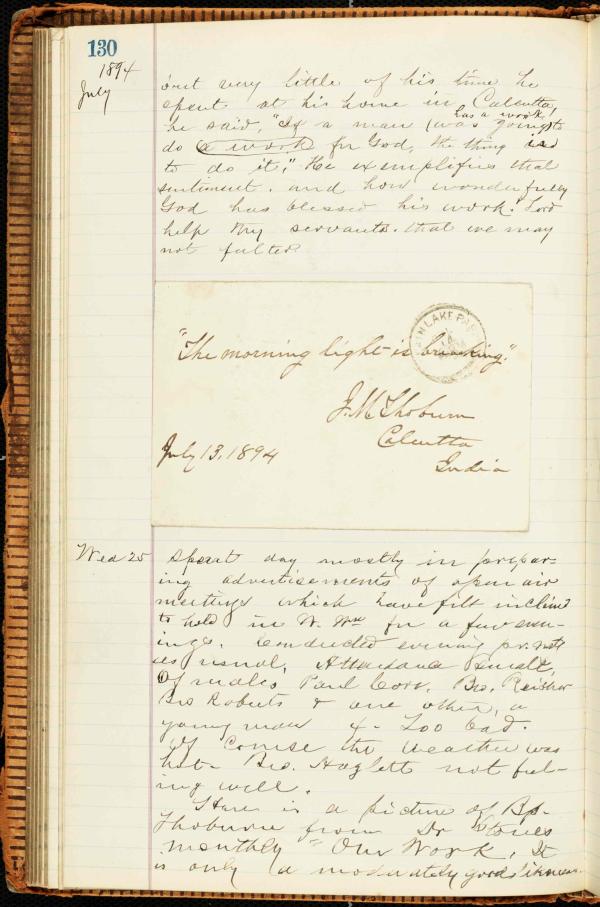 130
1894
July
out very little of his time he
spent at his home in Calcutta,
he said, "If a man (was going to
has a work,
do a work for God, the thing is
to do it," He exemplifies that
sentiment. and how wonderfully
God has blessed his work! Lord
help Thy servants. that we may
not falter
"The morning light is breaking."
J. M. Thoburn
Calcutta
India
July 13, 1894
Wed 25
Spent day mostly in prepar=
ing advertisements of open air
meetings which have felt inclined
to hold in W. for a few even-
ings. Conducted evening pr. meet
as usual, Attendance small,
Of males Paul Bro.
Bro Roberts & one other, a
young man 4 - Too bad.
Of course the weather was
hot. Bro. Hazlett not feel-
ing well.
Here is a picture of Bp.
Thoburn from Dr
monthly "Our Work, It
is only a moderately good likeness.